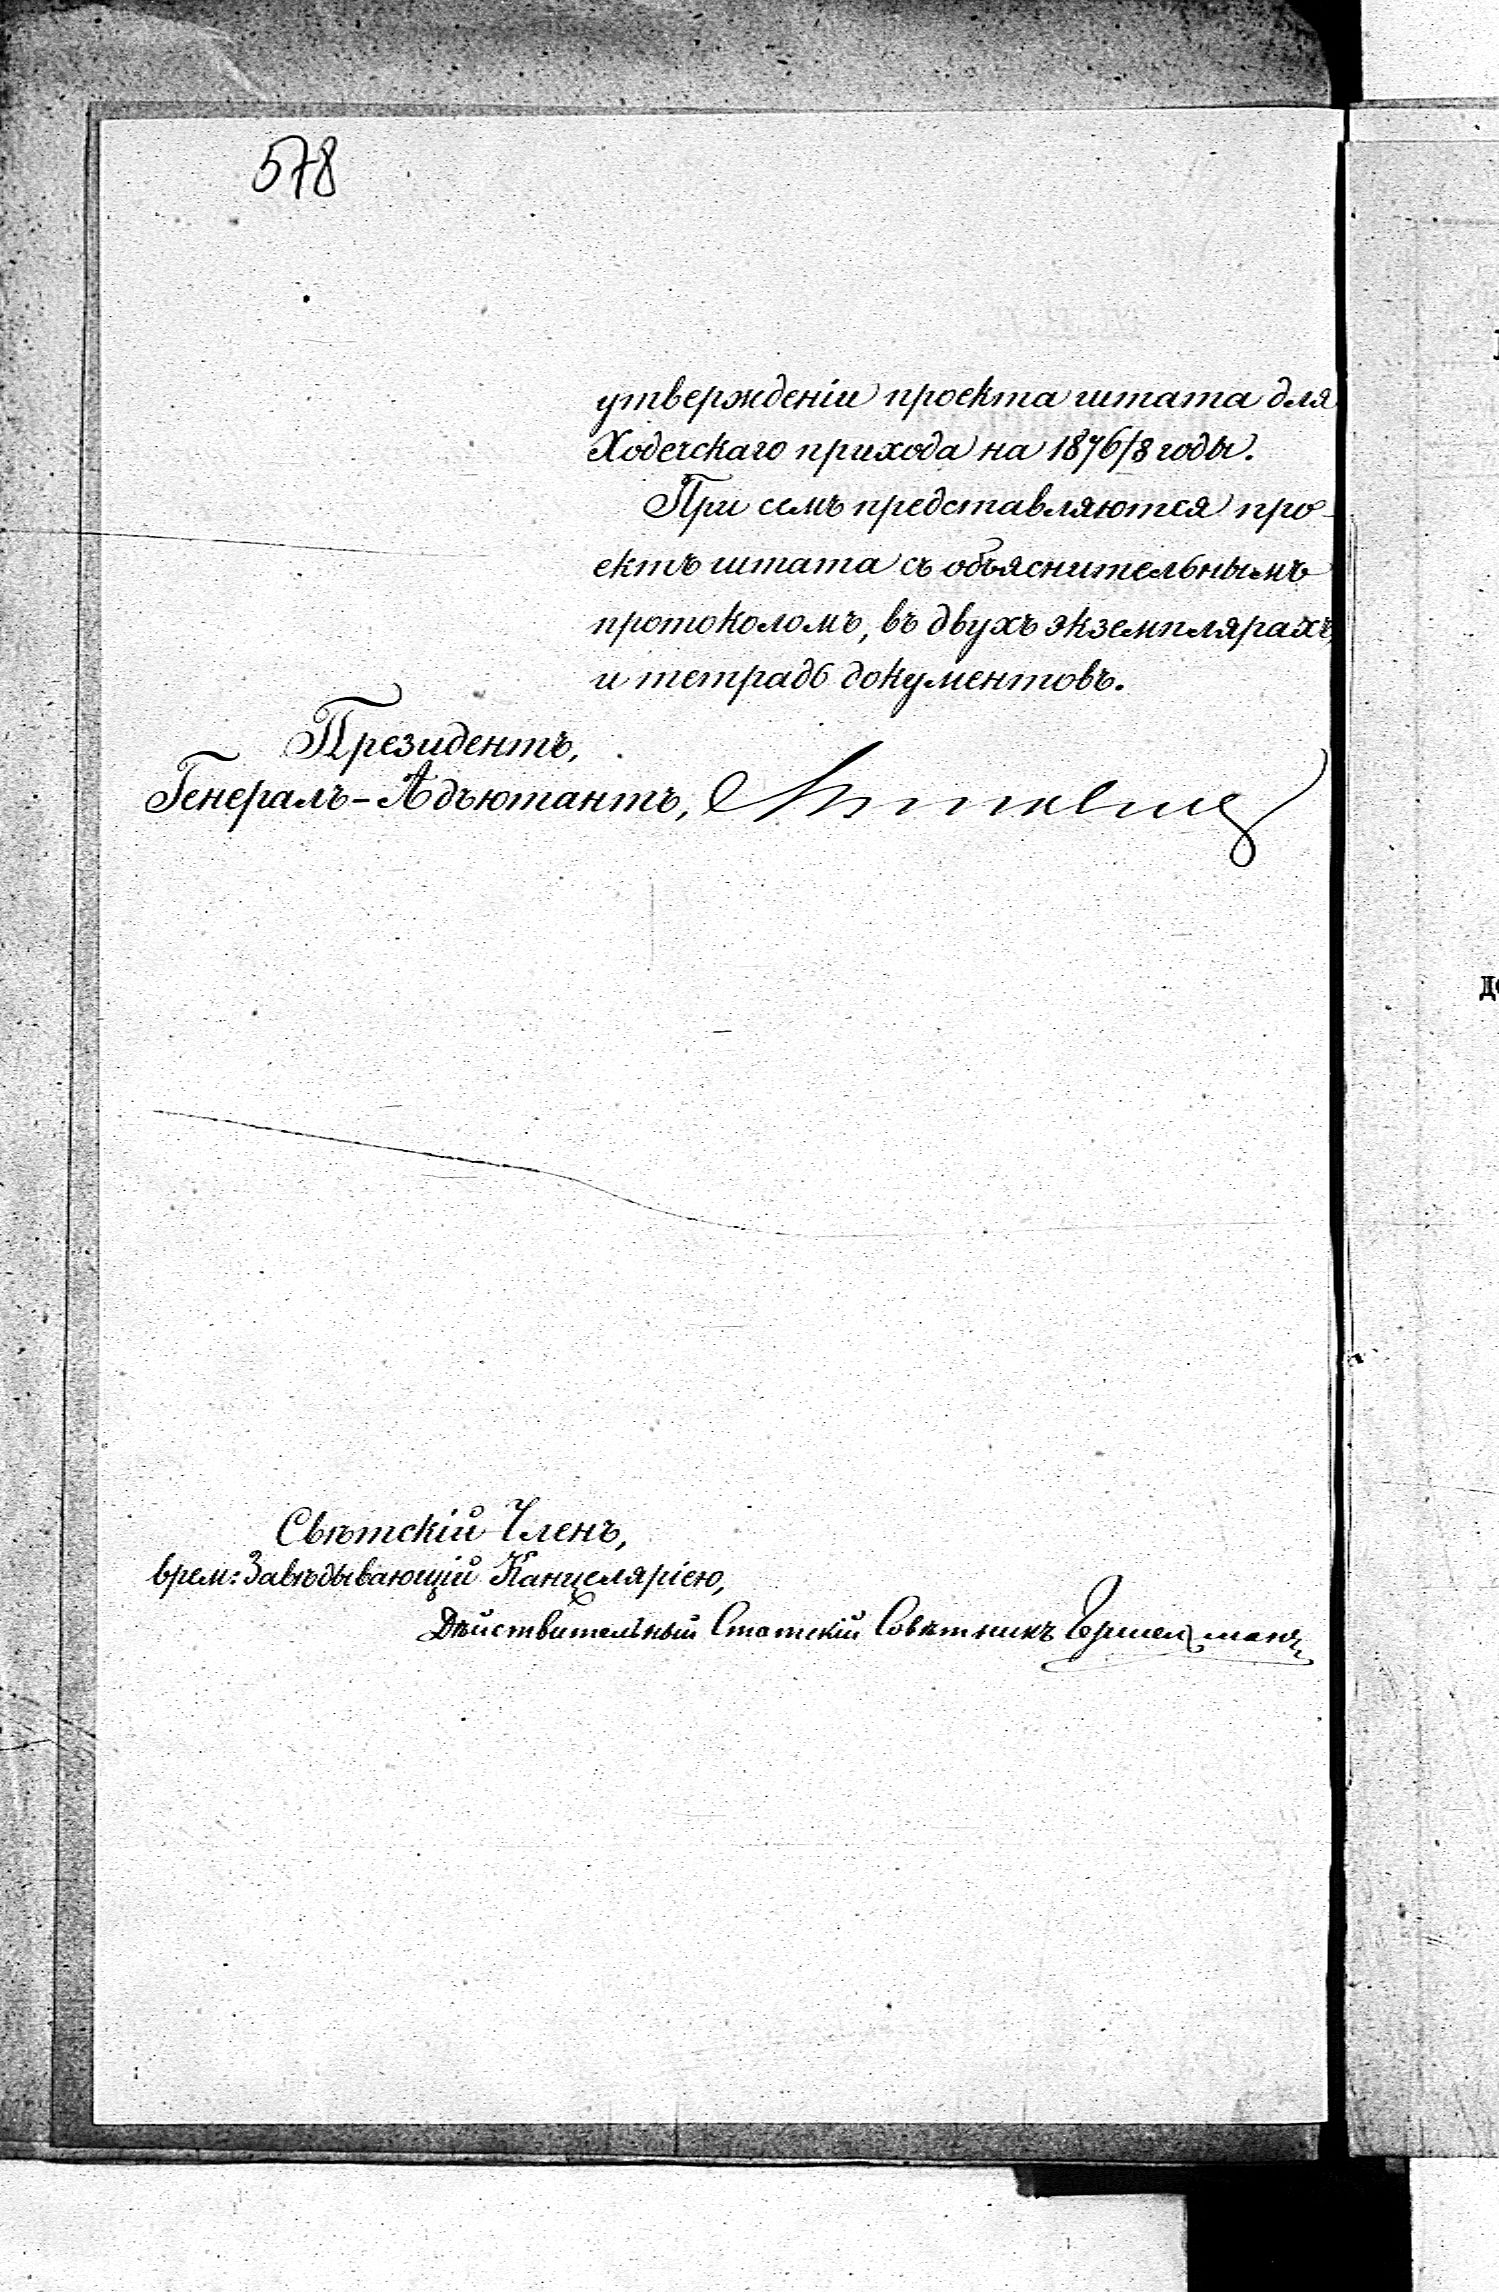 578
утвержденіи проекта штата для
Ходечскаго прихода на 1876/8 годы.
При семъ представляются про-
ектъ штата съ объяснительнымъ
протоколомъ, въ двухъ экземплярахъ,
и тетрадь документовъ.
Президентъ,
Генералъ-Адъютантъ,
Свѣтскій Членъ,
врем: Завѣдывающій Канцеляріею,
Дѣйствительный Статскій Совѣтникъ Гершельманъ